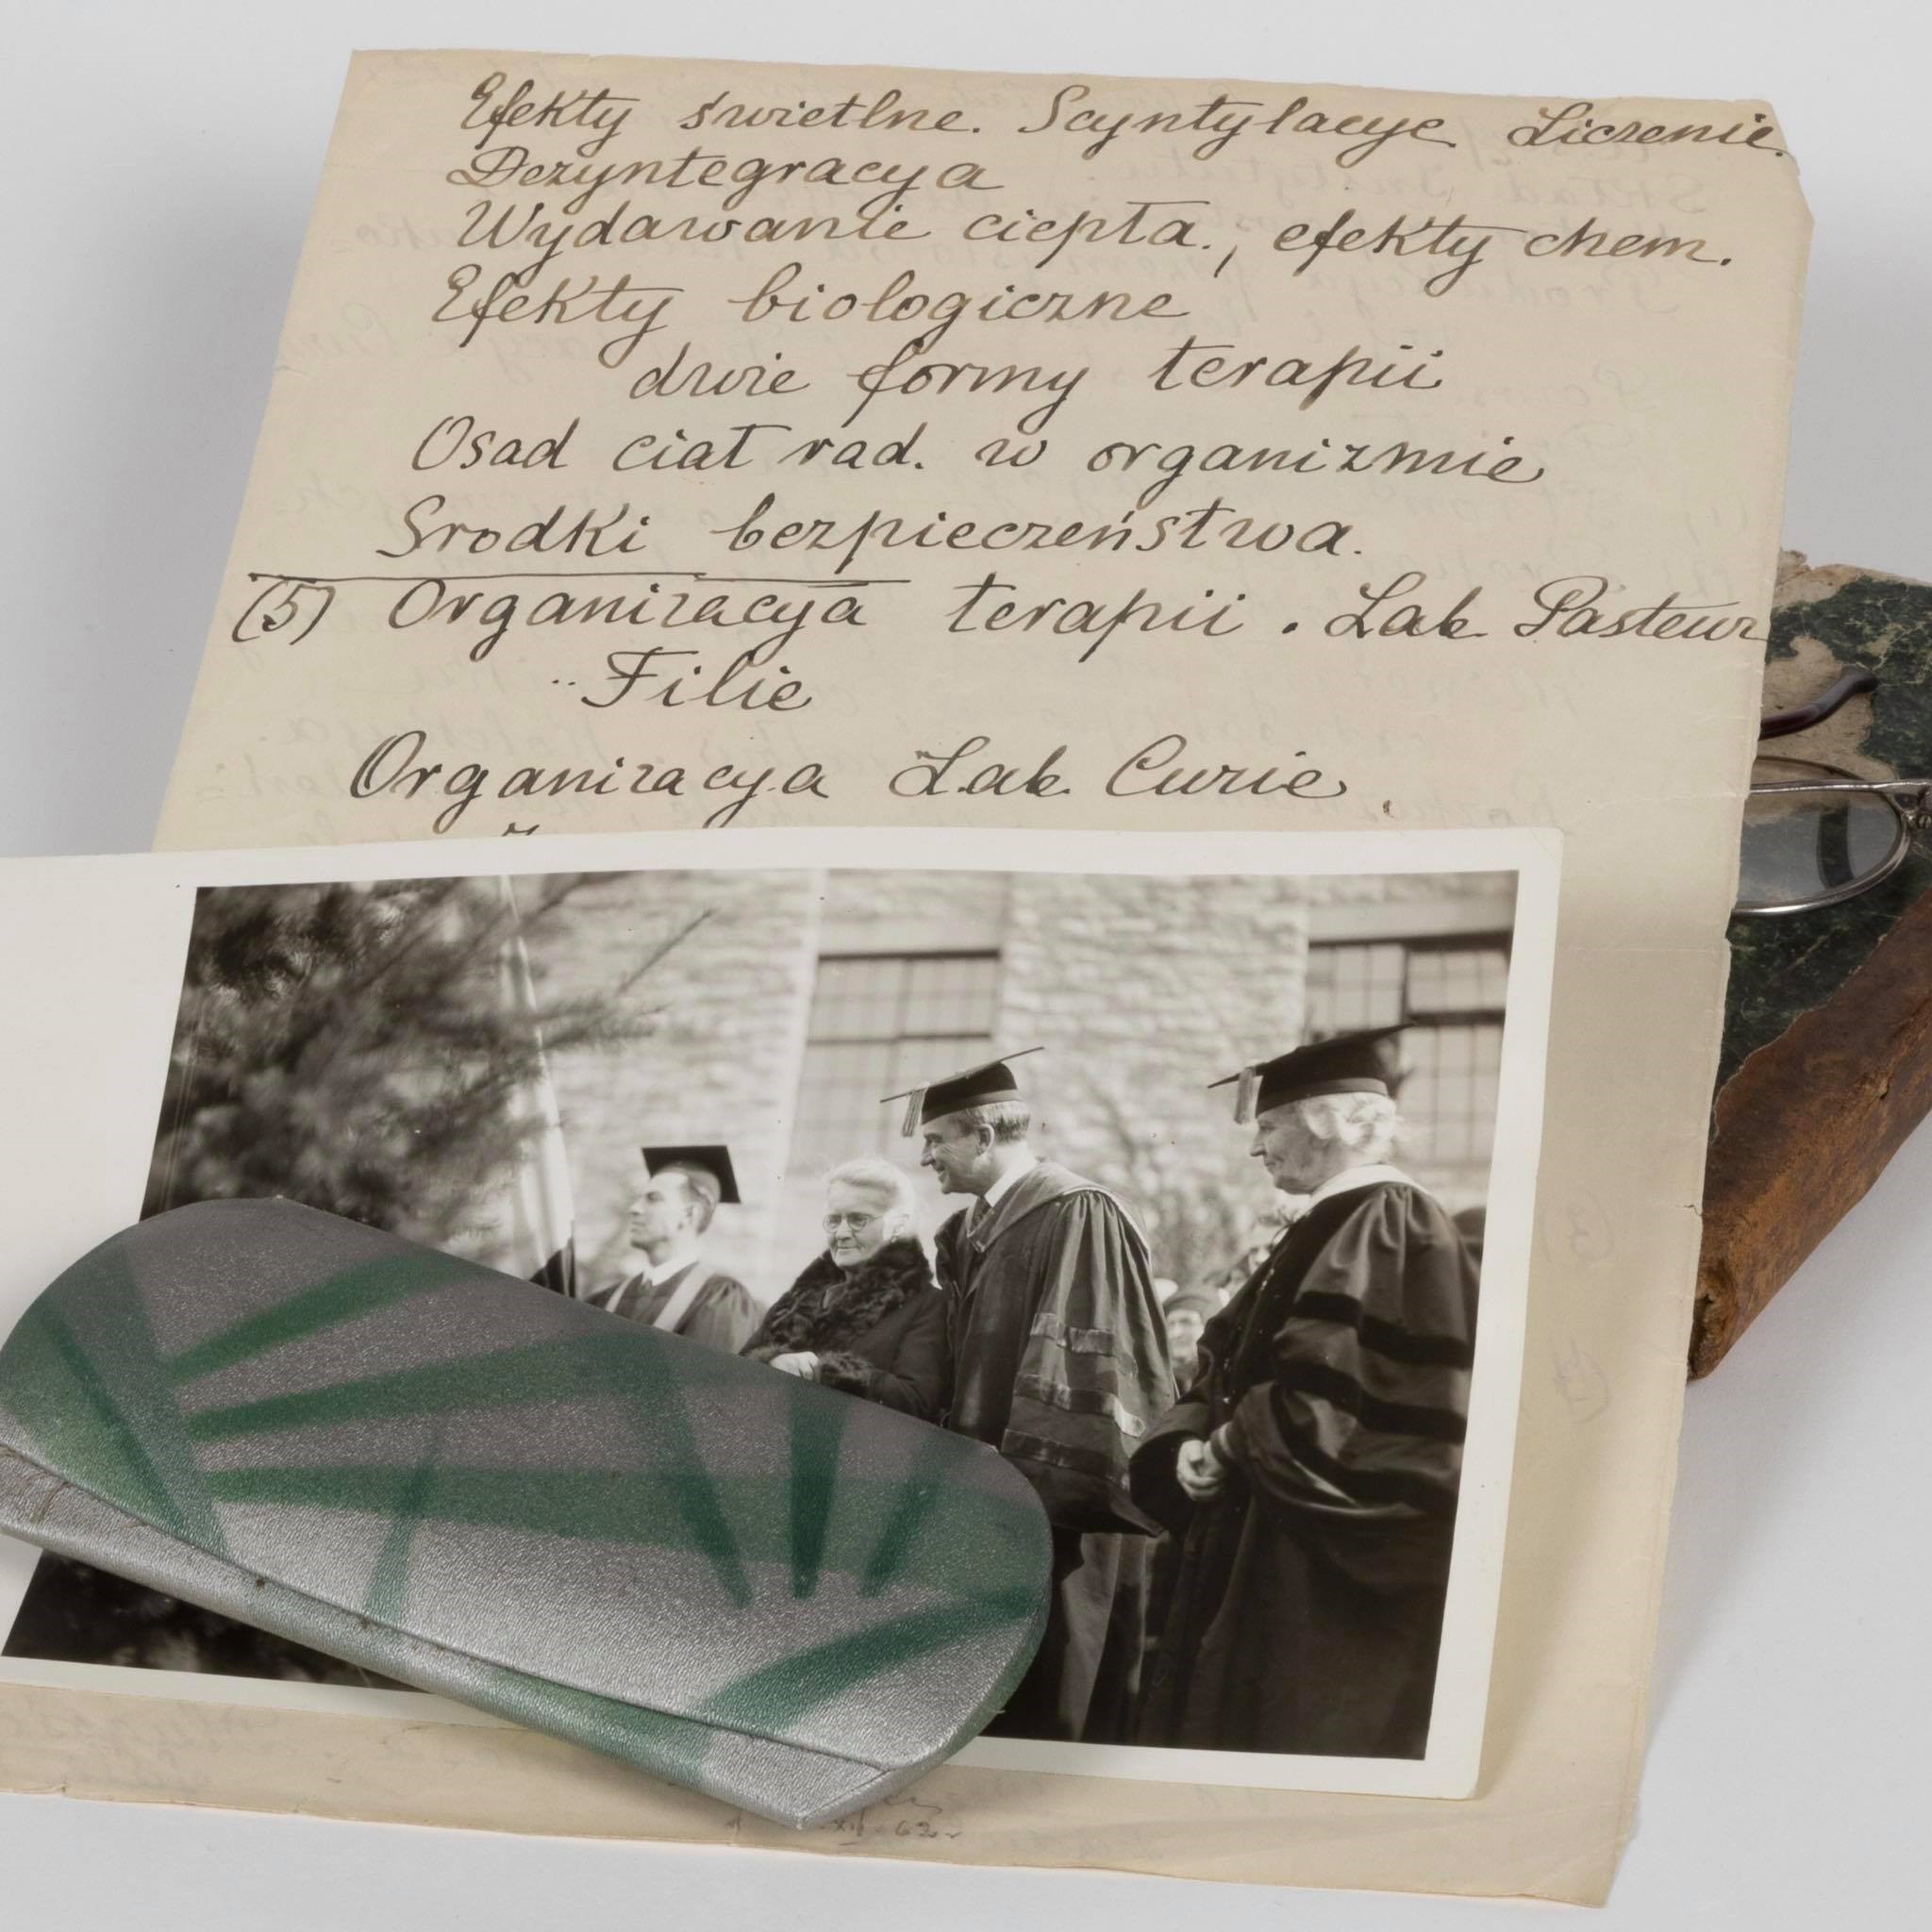 Efekty świetlne. Scyntylacye Liczenie.
Dezyntegracya
Wydawanie ciepła., efekty chem.
Efekty biologiczne
dwie formy terapii
Osad ciał rad. w organizmie
Srodki bezpieczeństwa.
(5) Organizacya terapii. Lab Pasteur
Filie
Organizacya Lab. Curie.